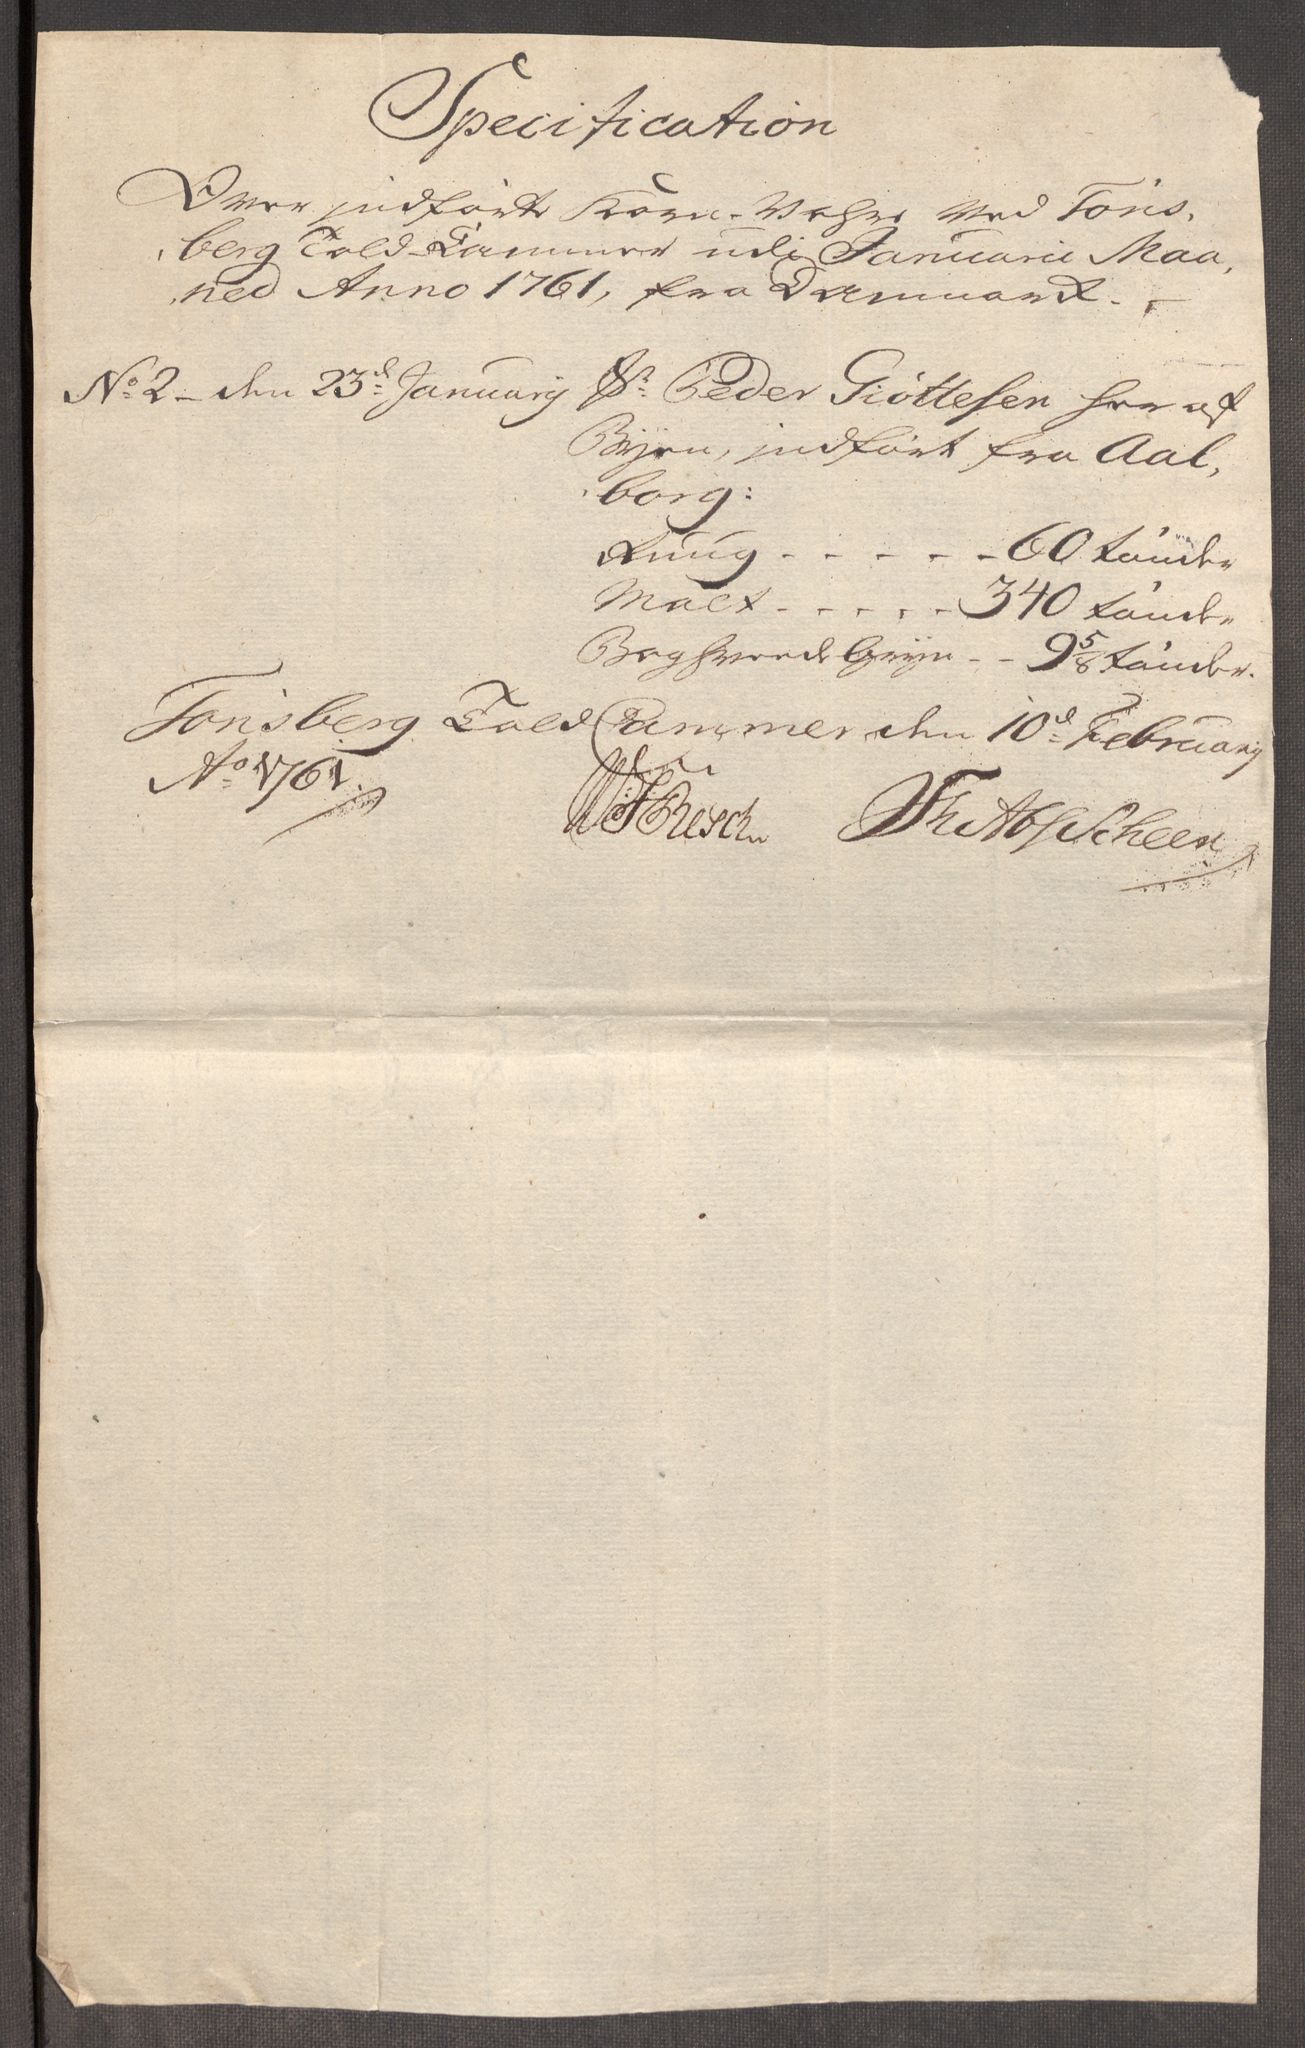 Specification
Over jndførte Korn-Vahre ved Töns,
berg Told-Cammer udi Januarii Maa,
ned Anno 1761, fra Danmark.
No 2 - den 23d January Sr Peder Giöttesen her af
Byen, jndført fra Aal,
borg:
Ruug - - - - - 60 tönder
Malt - - - - - 340 tönder
Boghvede Gryn - - 9 5/8 tönder.
Tönsberg Told Cammer den 10d February
Ao 1761.
Resch Abs Scheen